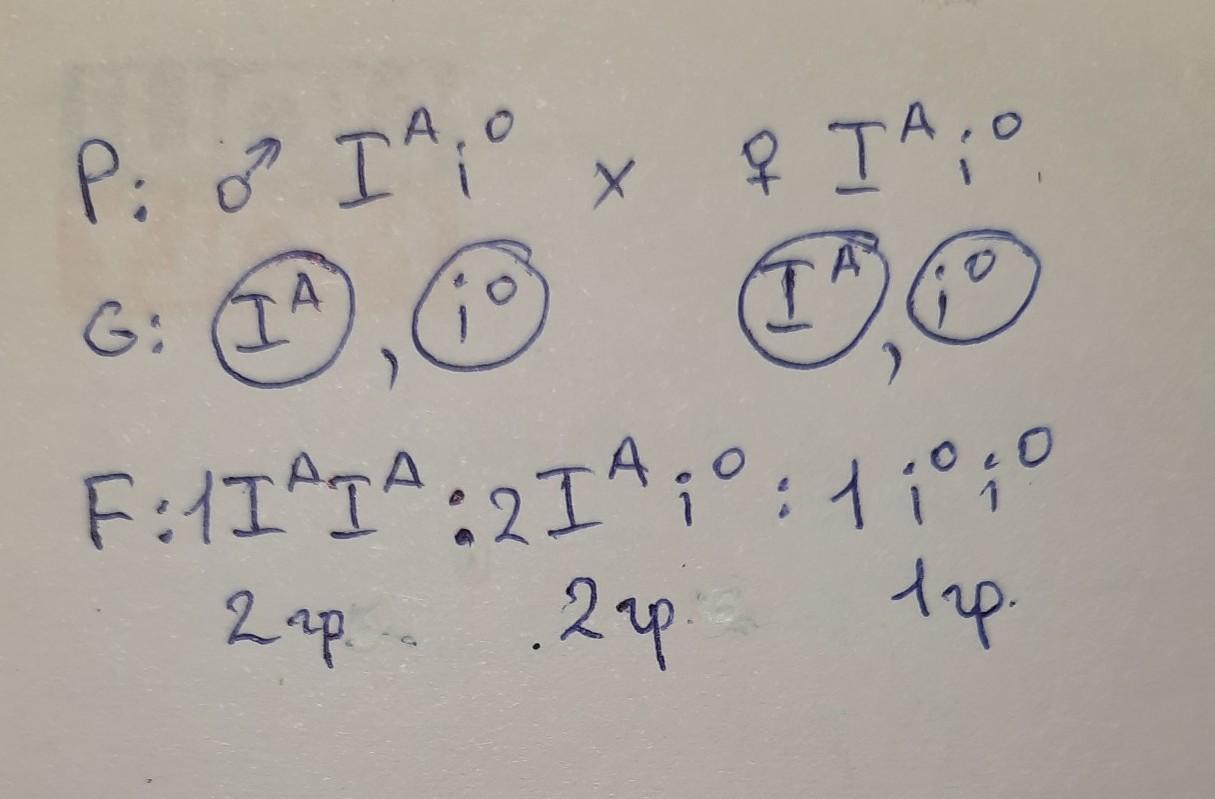 P: ♂ Iᴬ i⁰ x ♀ Iᴬ i⁰
G: Iᴬ, i⁰ Iᴬ, i⁰
F: 1 Iᴬ Iᴬ : 2 Iᴬ i⁰ : 1 i⁰ i⁰
2 гр. 2 гр. 1 гр.